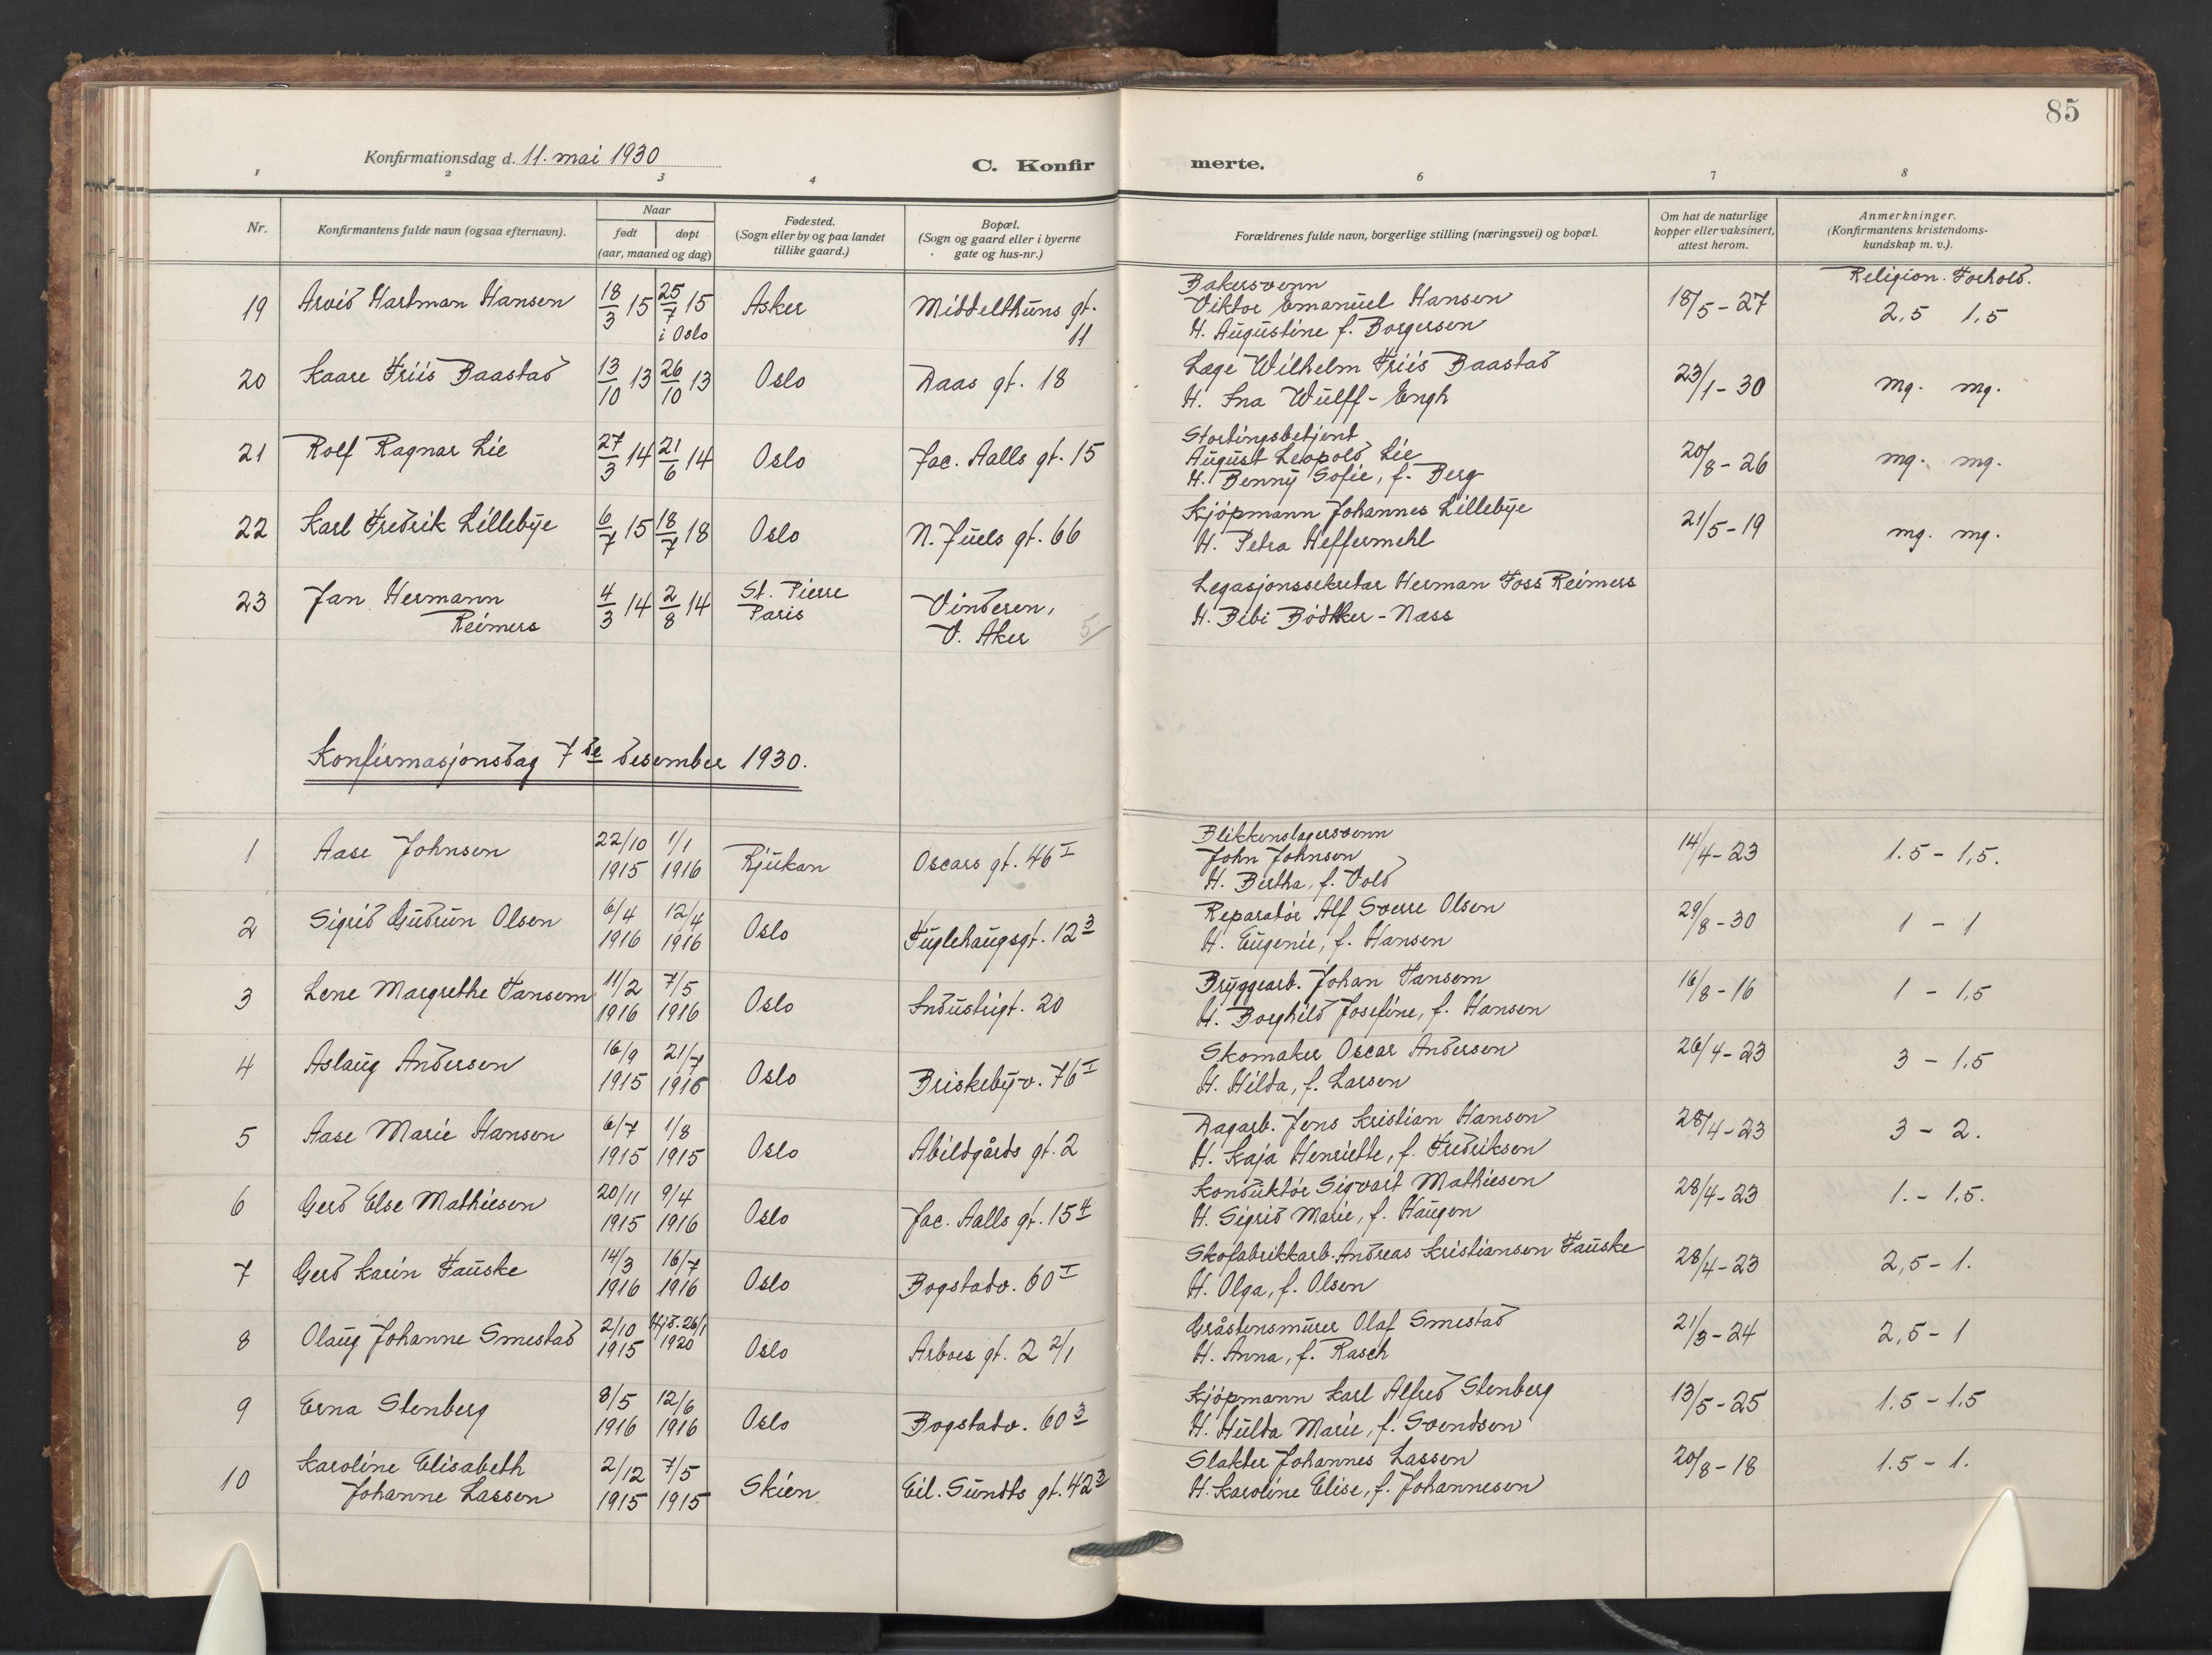 85
Konfirmationsdag d. 11. mai 1930
C. Konfir merte.
1 2 3 4 6 7 8
Nr.
Konfirmantens fulde navn (ogsaa efternavn).
Naar
født døpt
(aar, maaned og dag)
Fødested.
(Sogn eller by og paa landet
tillike gaard.)
Bopæl.
(Sogn og gaard eller i byerne
gate og hus-nr.)
Forældrenes fulde navn, borgerlige stilling (næringsvei) og bopæl.
Om hat de naturlige
kopper eller vaksinert,
attest herom.
Anmerkninger.
(Konfirmantens kristendoms-
kundskap m. v.).
Religion. Forhold.
19 Arvid Hartman Hansen 18/3 15 25/7 15 Asker Middelthuns gt.
i Oslo 11
Bakersvenn
Viktor Emanuel Hansen
H. Augustine f. Borgersen
18/5-27 2,5 1,5
20 Kaare Friis Baastad 13/10 13 26/10 13 Oslo Daas gt. 18
Læge Wilhelm Friis Baastad
H. Ina Wulff-Engh
23/1-30 mg. mg.
21 Rolf Ragnar Lie 27/3 14 21/6 14 Oslo Jac. Aalls gt. 15
Stortingsbetjent
August Leopold Lie
H. Benny Sofie, f. Berg
20/8-26 mg. mg.
22 Karl Fredrik Lillebye 6/7 15 18/7 18 Oslo N. Juels gt. 66
Kjøpmann Johannes Lillebye
H. Petra Heffermehl
21/5-19 mg. mg.
23 Jan Hermann 4/3 14 2/8 14 St. Pierre Vinderen,
Reimers Paris V. Aker 5/
Legasjonssekretær Herman Foss Reimers
H. Bibi Bødtker-Næss
Konfirmasjonsdag 7de desember 1930.
1 Aase Johnsen 22/10 1915 1/1 1916 Rjukan Oscars gt. 46 I
Blikkenslagersvenn
John Johnsen
H. Bertha, f. Vold
14/4-23 1.5-1,5.
2 Sigrid Gudrun Olsen 6/4 1916 12/4 1916 Oslo Fuglehaugsgt. 12 3
Reparatør Alf Sverre Olsen
H. Eugenie, f. Hansen
29/8-30 1 - 1
3 Lene Margrethe Tansem 11/2 1916 7/5 1916 Oslo Industrigt. 20
Bryggearb. Johan Tansem
H. Borghild Josefine, f. Hansen
16/8-16 1 - 1,5
4 Aslaug Andersen 16/9 1915 21/7 1916 Oslo Briskebyv. 76 I
Skomaker Oscar Andersen
H. Hilda, f. Larsen
26/4-23 3 - 1.5
5 Aase Marie Hansen 6/7 1915 1/8 1915 Oslo Abildgårds gt. 2
Dagarb. Jens Kristian Hansen
H. Kaja Henriette, f. Fredriksen
28/4-23 3 - 2.
6 Gerd Else Mathiesen 20/11 1915 9/4 1916 Oslo Jac. Aalls gt. 15 4
Konduktør Sigvart Mathiesen
H. Sigrid Marie, f. Haugen
28/4-23 1. - 1,5.
7 Gerd Karin Fauske 14/3 1916 16/7 1916 Oslo Bogstadv. 60 I
Skofabrikkarb. Andreas Kristiansen Fauske
H. Olga, f. Olsen
28/4-23 2,5-1.
8 Olaug Johanne Smestad 2/10 1915 Hjd. 26/1 1920 Oslo Arboes gt. 2 2/1
Gråstensmurer Olaf Smestad
H. Anna, f. Rasch
21/3-24 2,5-1
9 Erna Stenberg 8/5 1916 12/6 1916 Oslo Bogstadv. 60 3
Kjøpmann Karl Alfred Stenberg
H. Hulda Marie, f. Svendsen
13/5-25 1.5-1.5
10 Karoline Elisabeth 2/12 7/5 Skien Eil. Sundts gt. 42 3
Johanne Lassen 1915 1915
Slakter Johannes Lassen
H. Karoline Elise, f. Johannesen
20/8-18 1.5-1.